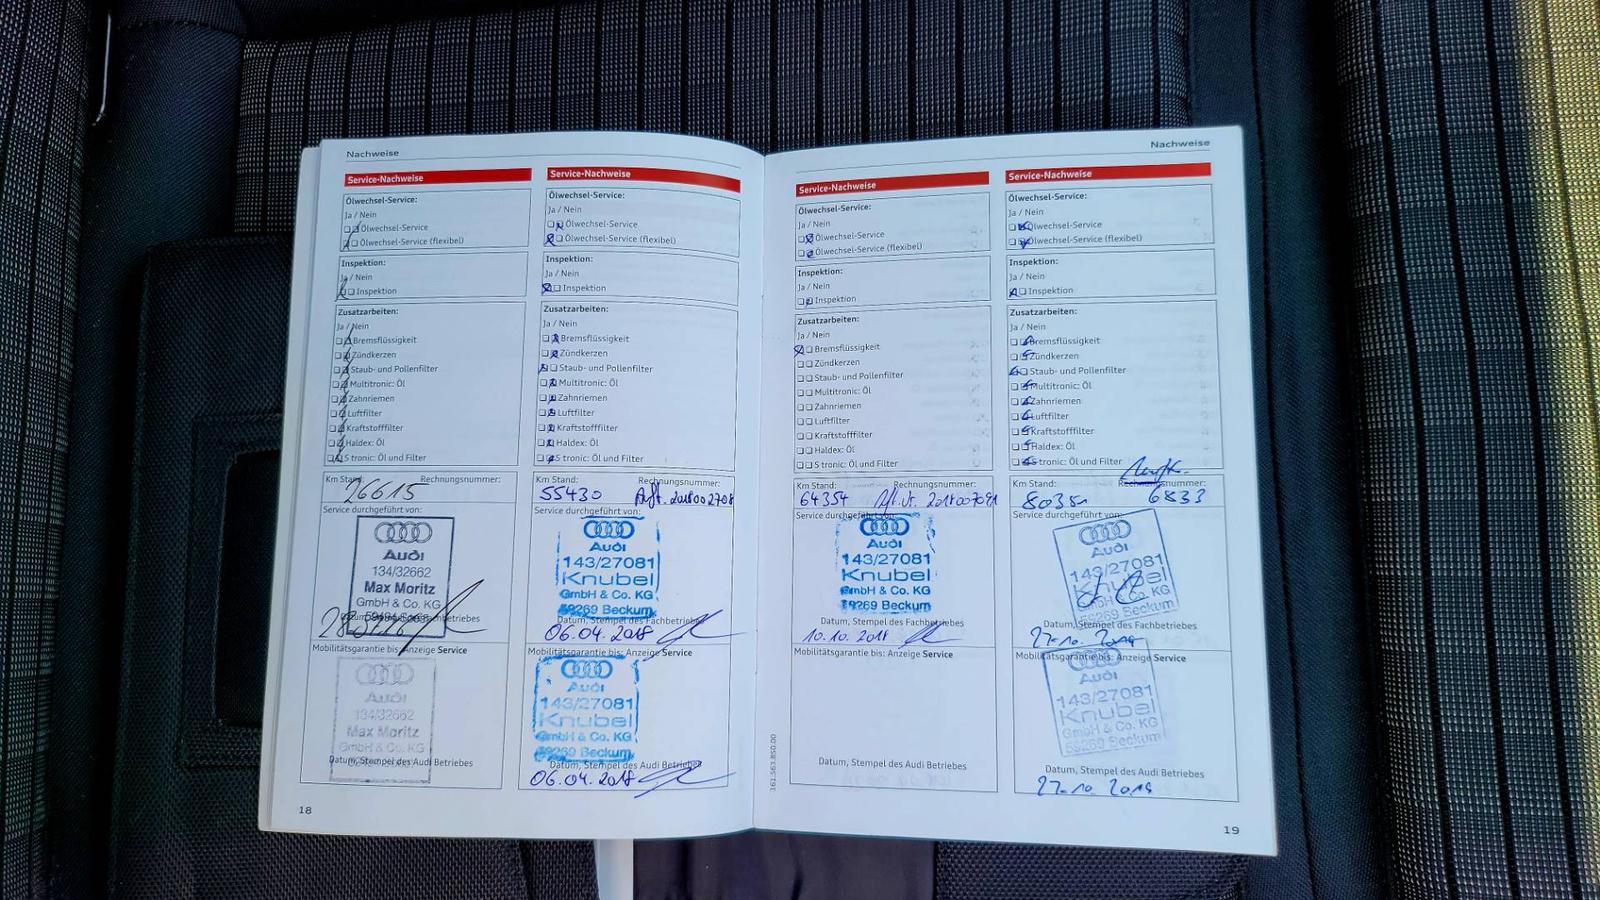 Nachweise
Service-Nachweise
Ölwechsel-Service:
Ja / Nein
Ölwechsel-Service
Ölwechsel-Service (flexibel)
Inspektion:
Ja / Nein
Inspektion
Zusatzarbeiten:
Ja / Nein
Bremsflüssigkeit
Zündkerzen
Staub- und Pollenfilter
Multitronic: Öl
Zahnriemen
Luftfilter
Kraftstofffilter
Haldex: Öl
S tronic: Öl und Filter
Km Stand: Rechnungsnummer:
26615
Service durchgeführt von:
Audi
134/32662
Max Moritz
GmbH & Co. KG
Mobilitätsgarantie bis: Anzeige Service
Audi
134/32662
Max Moritz
GmbH & Co. KG
Datum, Stempel des Audi Betriebes
18
Service-Nachweise
Ölwechsel-Service:
Ja / Nein
Ölwechsel-Service
Ölwechsel-Service (flexibel)
Inspektion:
Ja / Nein
Inspektion
Zusatzarbeiten:
Ja / Nein
Bremsflüssigkeit
Zündkerzen
Staub- und Pollenfilter
Multitronic: Öl
Zahnriemen
Luftfilter
Kraftstofffilter
Haldex: Öl
S tronic: Öl und Filter
Km Stand: Rechnungsnummer:
55430
Service durchgeführt von:
Audi
143/27081
Knubel
GmbH & Co. KG
59269 Beckum
Datum, Stempel des Fachbetriebes
06.04.2018
Mobilitätsgarantie bis: Anzeige Service
Audi
143/27081
Knubel
GmbH & Co. KG
59269 Beckum
Datum, Stempel des Audi Betriebes
06.04.2018
Nachweise
Service-Nachweise
Ölwechsel-Service:
Ja / Nein
Ölwechsel-Service
Ölwechsel-Service (flexibel)
Inspektion:
Ja / Nein
Inspektion
Zusatzarbeiten:
Ja / Nein
Bremsflüssigkeit
Zündkerzen
Staub- und Pollenfilter
Multitronic: Öl
Zahnriemen
Luftfilter
Kraftstofffilter
Haldex: Öl
S tronic: Öl und Filter
Km Stand: Rechnungsnummer:
64354 2018007091
Service durchgeführt von:
Audi
143/27081
Knubel
GmbH & Co. KG
59269 Beckum
Datum, Stempel des Fachbetriebes
10.10.2018
Mobilitätsgarantie bis: Anzeige Service
Datum, Stempel des Audi Betriebes
161.563.850.00
Service-Nachweise
Ölwechsel-Service:
Ja / Nein
Ölwechsel-Service
Ölwechsel-Service (flexibel)
Inspektion:
Ja / Nein
Inspektion
Zusatzarbeiten:
Ja / Nein
Bremsflüssigkeit
Zündkerzen
Staub- und Pollenfilter
Multitronic: Öl
Zahnriemen
Luftfilter
Kraftstofffilter
Haldex: Öl
S tronic: Öl und Filter
Km Stand: Rechnungsnummer:
6833
Service durchgeführt von:
Audi
143/27081
Knubel
GmbH & Co. KG
59269 Beckum
Datum, Stempel des Fachbetriebes
27.10.2019
Mobilitätsgarantie bis: Anzeige Service
Audi
143/27081
Knubel
GmbH & Co. KG
59269 Beckum
Datum, Stempel des Audi Betriebes
27.10.2019
19